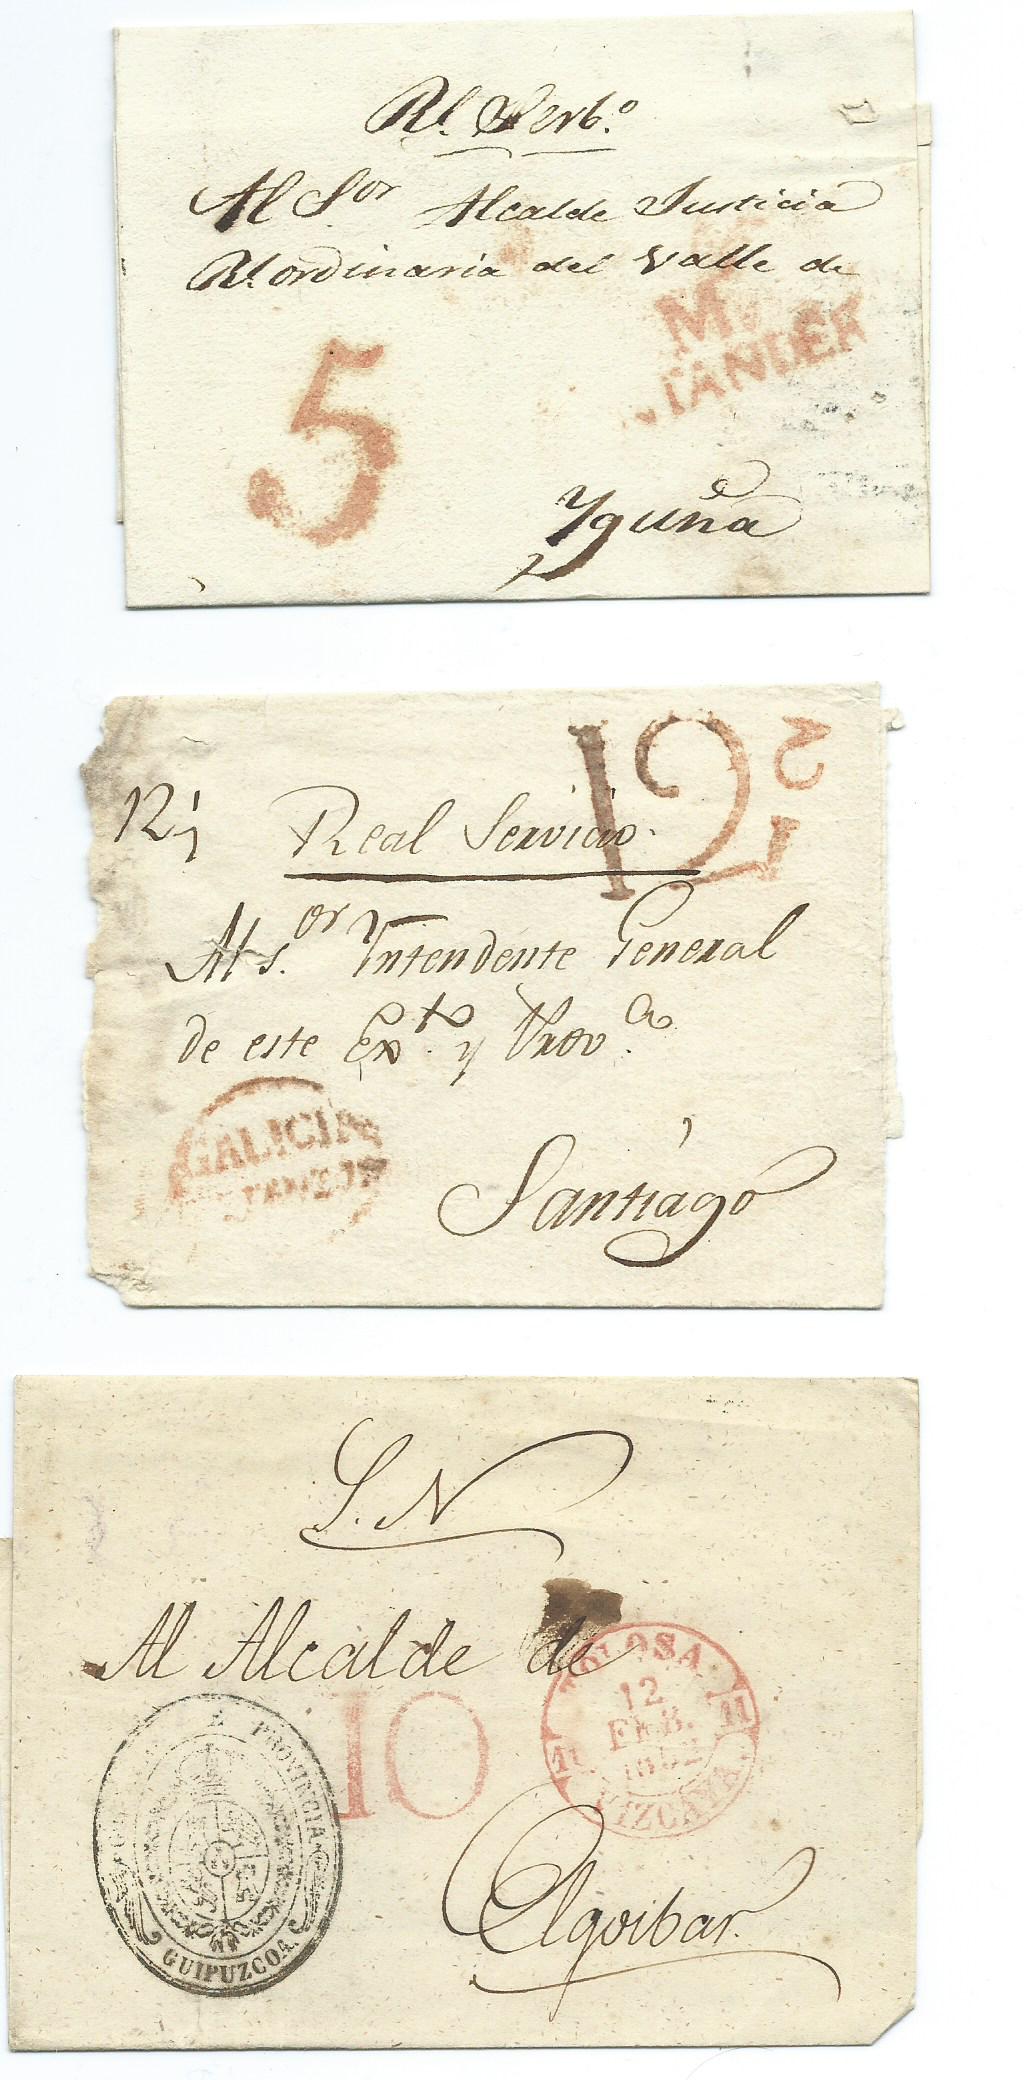 Rl. Serbo.
Al Sor. Alcalde Justicia
Rl. ordinaria del Valle de
M.
5
Yguña
2
12
Real Servicio.
Al s.or Yntendente General
de este Exto. y Prov.a
GALICIA
Santiago
S. N
Al Alcalde de
TOLOSA
12
FEB.
1852
11 11
VIZCAYA.
10
PROVINCIA
GUIPUZCOA.
Elgoibar.